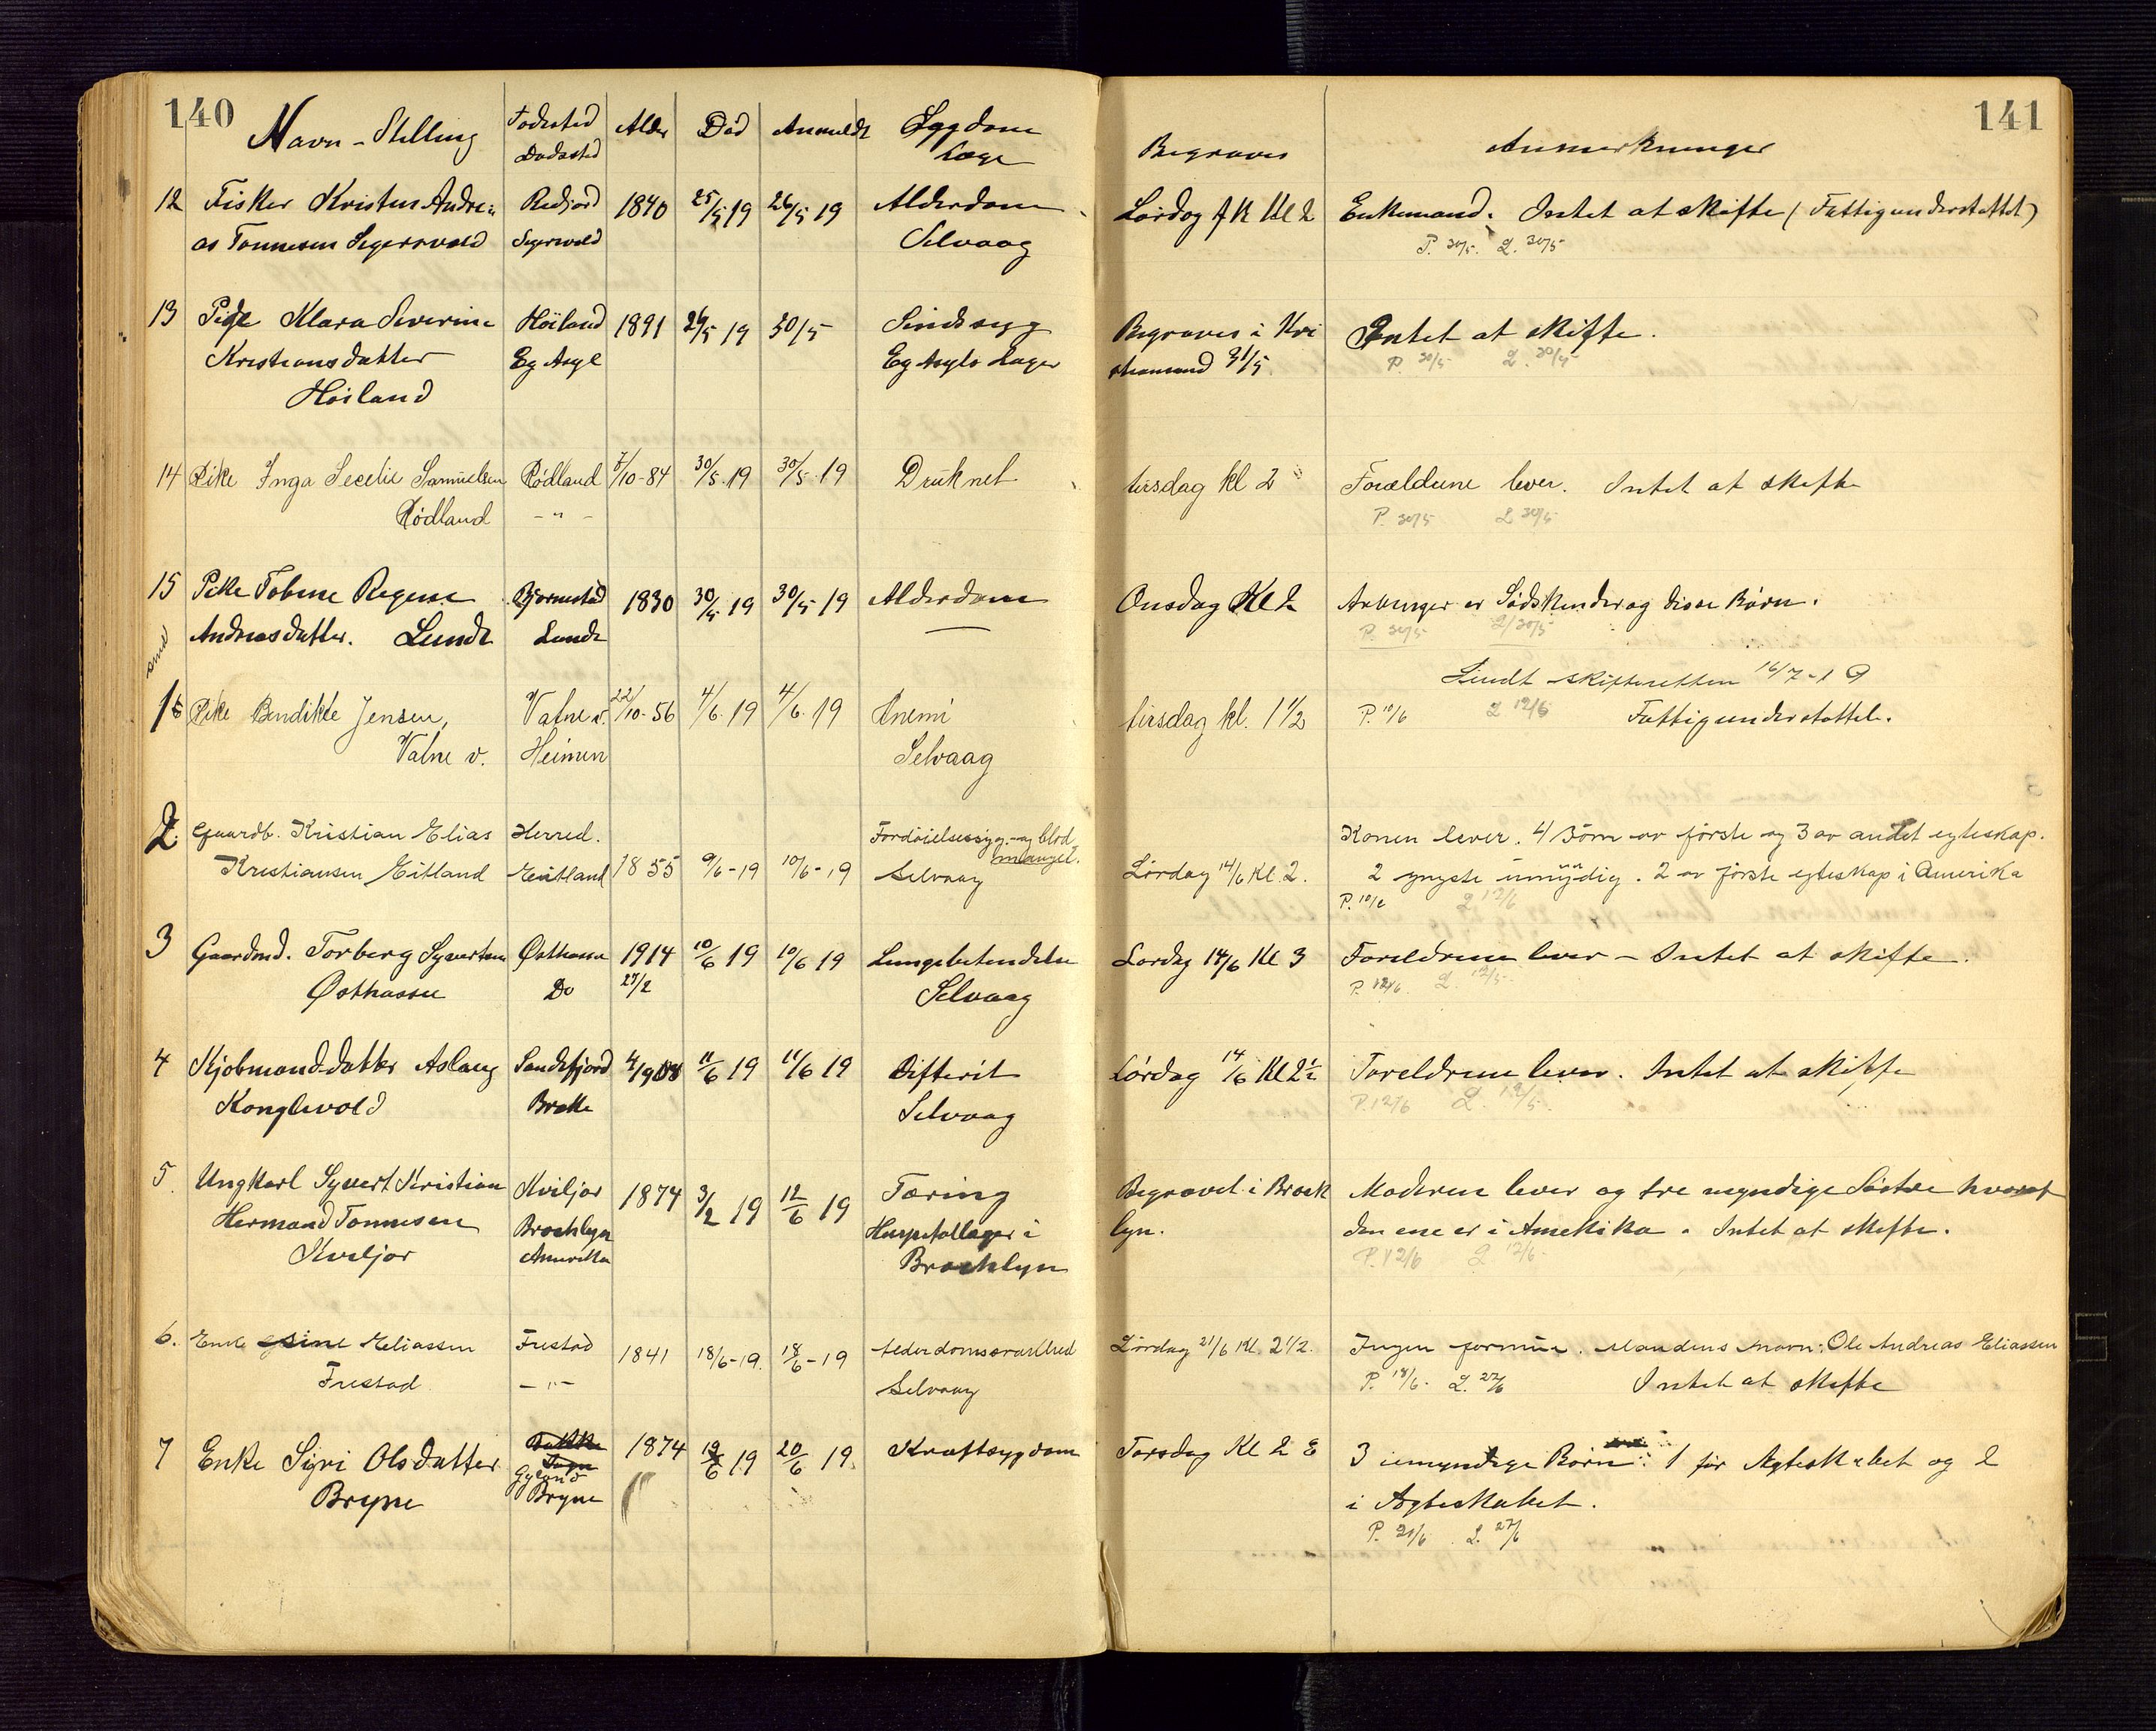 140
141
Navn - Stilling Fødested Alder Død Anmeldt Sygdom Begraves Anmerkninger
Dødssted Læge
12 Fisker Kristen Andre= Redjord 1840 25/5 19 26/5 19 Alderdom Lørdag Kl 2 Enkemand. Intet at skifte (Fattigunderstøttet)
as Tønnesen Segersvold Segersvold Selvaag P. 30/5. L. 30/5
13 Pige Klara Severine Høiland 1891 26/5 19 30/5 Sindssyg Begraves i Kri Intet at skifte.
Kristiansdatter Eg Asyl Eg Asyls Læger stiansand 31/5. P. 30/5 L. 30/5
Høiland
14 Pike Inga Secelie Samuelsen Rødland 7/10-84 30/5.19 30/5.19 Druknet tirsdag kl 2 Forældrene lever. Intet at skifte
Rødland - " - P. 30/5 L 30/5
15 Pike Tobine Regine Bjørnestad 1830 30/5 19 30/5 19 Alderdom Onsdag Kl 2 Arvinger er Södskender og disses Børn.
Andreasdatter. Lunde Lunde P. 30/5 L 30/5
Sendt skifteretten 16/7-19
16 Pike Bendikte Jensen, Vatne v. 22/10-56 4/6.19 4/6.19 Anemi tirsdag kl. 1 1/2 P. 10/6 L 12/6 Fattigunderstøttet.
Vatne v. Heimen Selvaag
2. Gaardb. Kristian Elias Herred. Fordøielsessyg.- og blod Konen lever. 4 Börn av förste og 3 av andet egteskap.
mangel.
Kristiansen Eitland Eitland 1855 9/6-19 10/6-19 Selvaag Lørdag 14/6 Kl. 2. 2 yngste umyndig. 2 av förste egteskap i Amerika
P. 10/6 L 12/6
3 Gaardmd. Torberg Syvertsen Østhassel 1914 10/6 19 10/6 19 Lungebetendelse Lørdag 14/6 Kl 3 Foreldrene lever - Intet at skifte.
Østhassel Do 27/2 Selvaag P. 12/6 L.
4 Kjøbmandsdatter Aslaug Sandefjord 4/9 08 11/6 19 11/6 19 Difterit Lørdag 14/6 Kl 2½ Foreldrene lever. Intet at skifte
Konglevold Brekke Selvaag P. 12/6 L.
5 Ungkarl Syvert Kristian Kviljor 1874 3/2 19 12/6 19 Tæring Begravet i Brook Moderen lever og tre myndige Søstre hvoraf
Hermand Tønnesen Brochlyn Hospitallæger i lyn. den ene er i Amerika. Intet at skifte.
Kviljor Amerika Brochlyn P. 12/6 L 12/6
6. Enke Gsine Eliassen Frestad 1841 18/6-19. 18/6-19 Alderdomssvakhed Lørdag 21/6 Kl. 2 1/2. Ingen formue. Mandens navn: Ole Andreas Eliassen
Frestad - " - Selvaag P. 18/6. L. 27/6 Intet at skifte
7 Enke Siri Olsdatter Gyland 1874 19/6 19 20/6 19. Kræftsygdom Torsdag Kl 2 3 umyndige Børn: 1 før Ægteskabet og 2
Bryne Bryne i Ægteskabet.
P. 20/6 L. 27/6